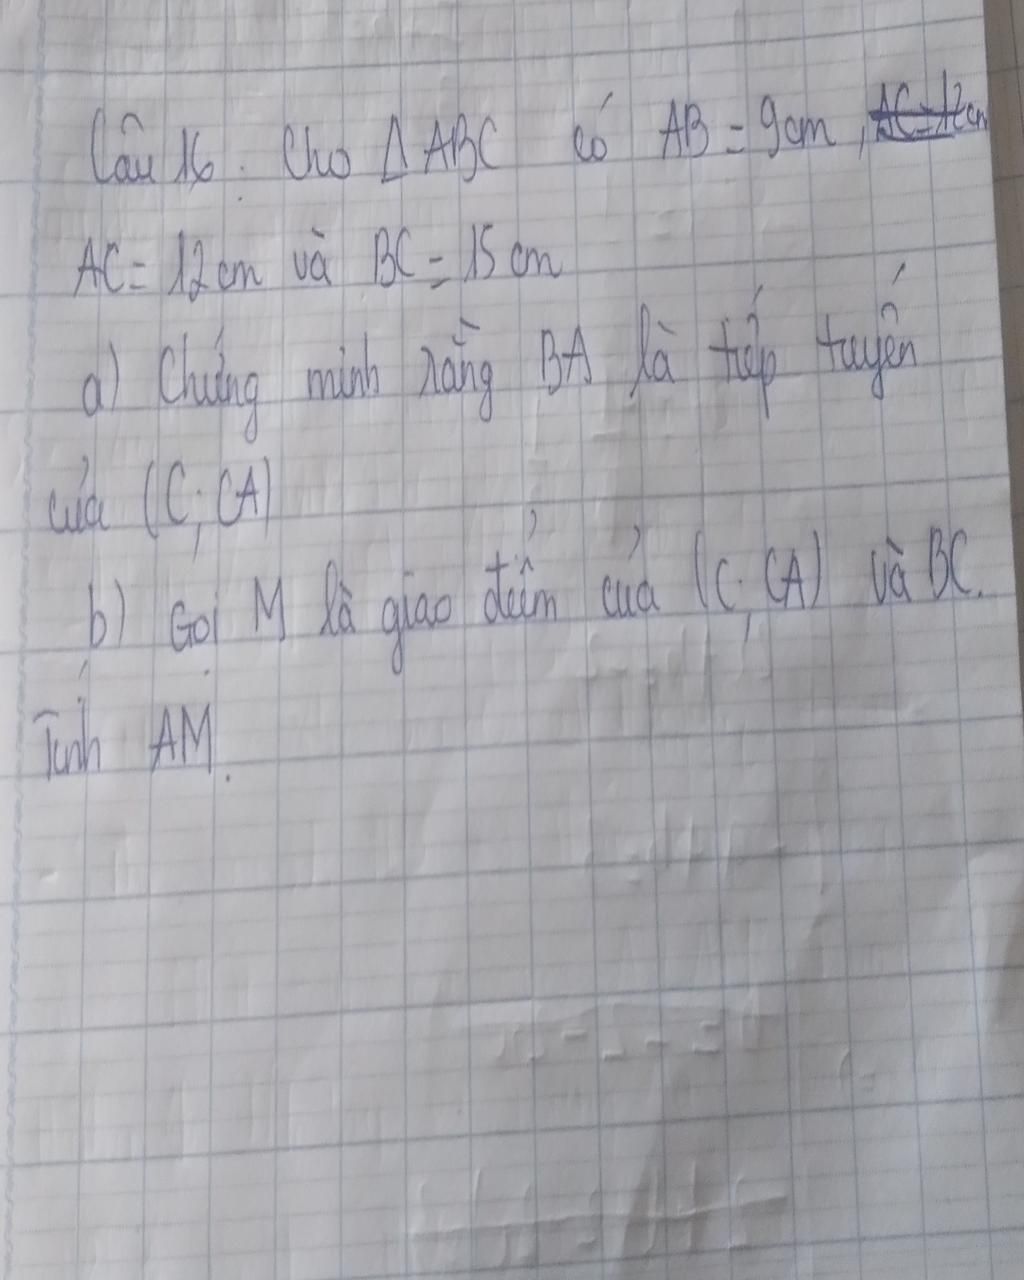 Câu 16: Cho Δ ABC có AB = 9cm, AC = 12cm
AC = 12 cm và BC = 15 cm
a) Chứng minh rằng BA là tiếp tuyến
của (C; CA)
b) Gọi M là giao điểm của (C; CA) và BC.
Tính AM.